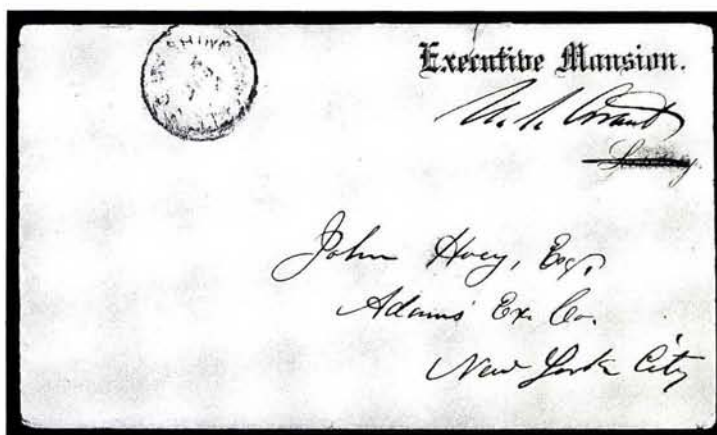 Executive Mansion.
U. S. Grant
Secretary.
John Hoey, Esq,
Adams Ex. Co.
New York City